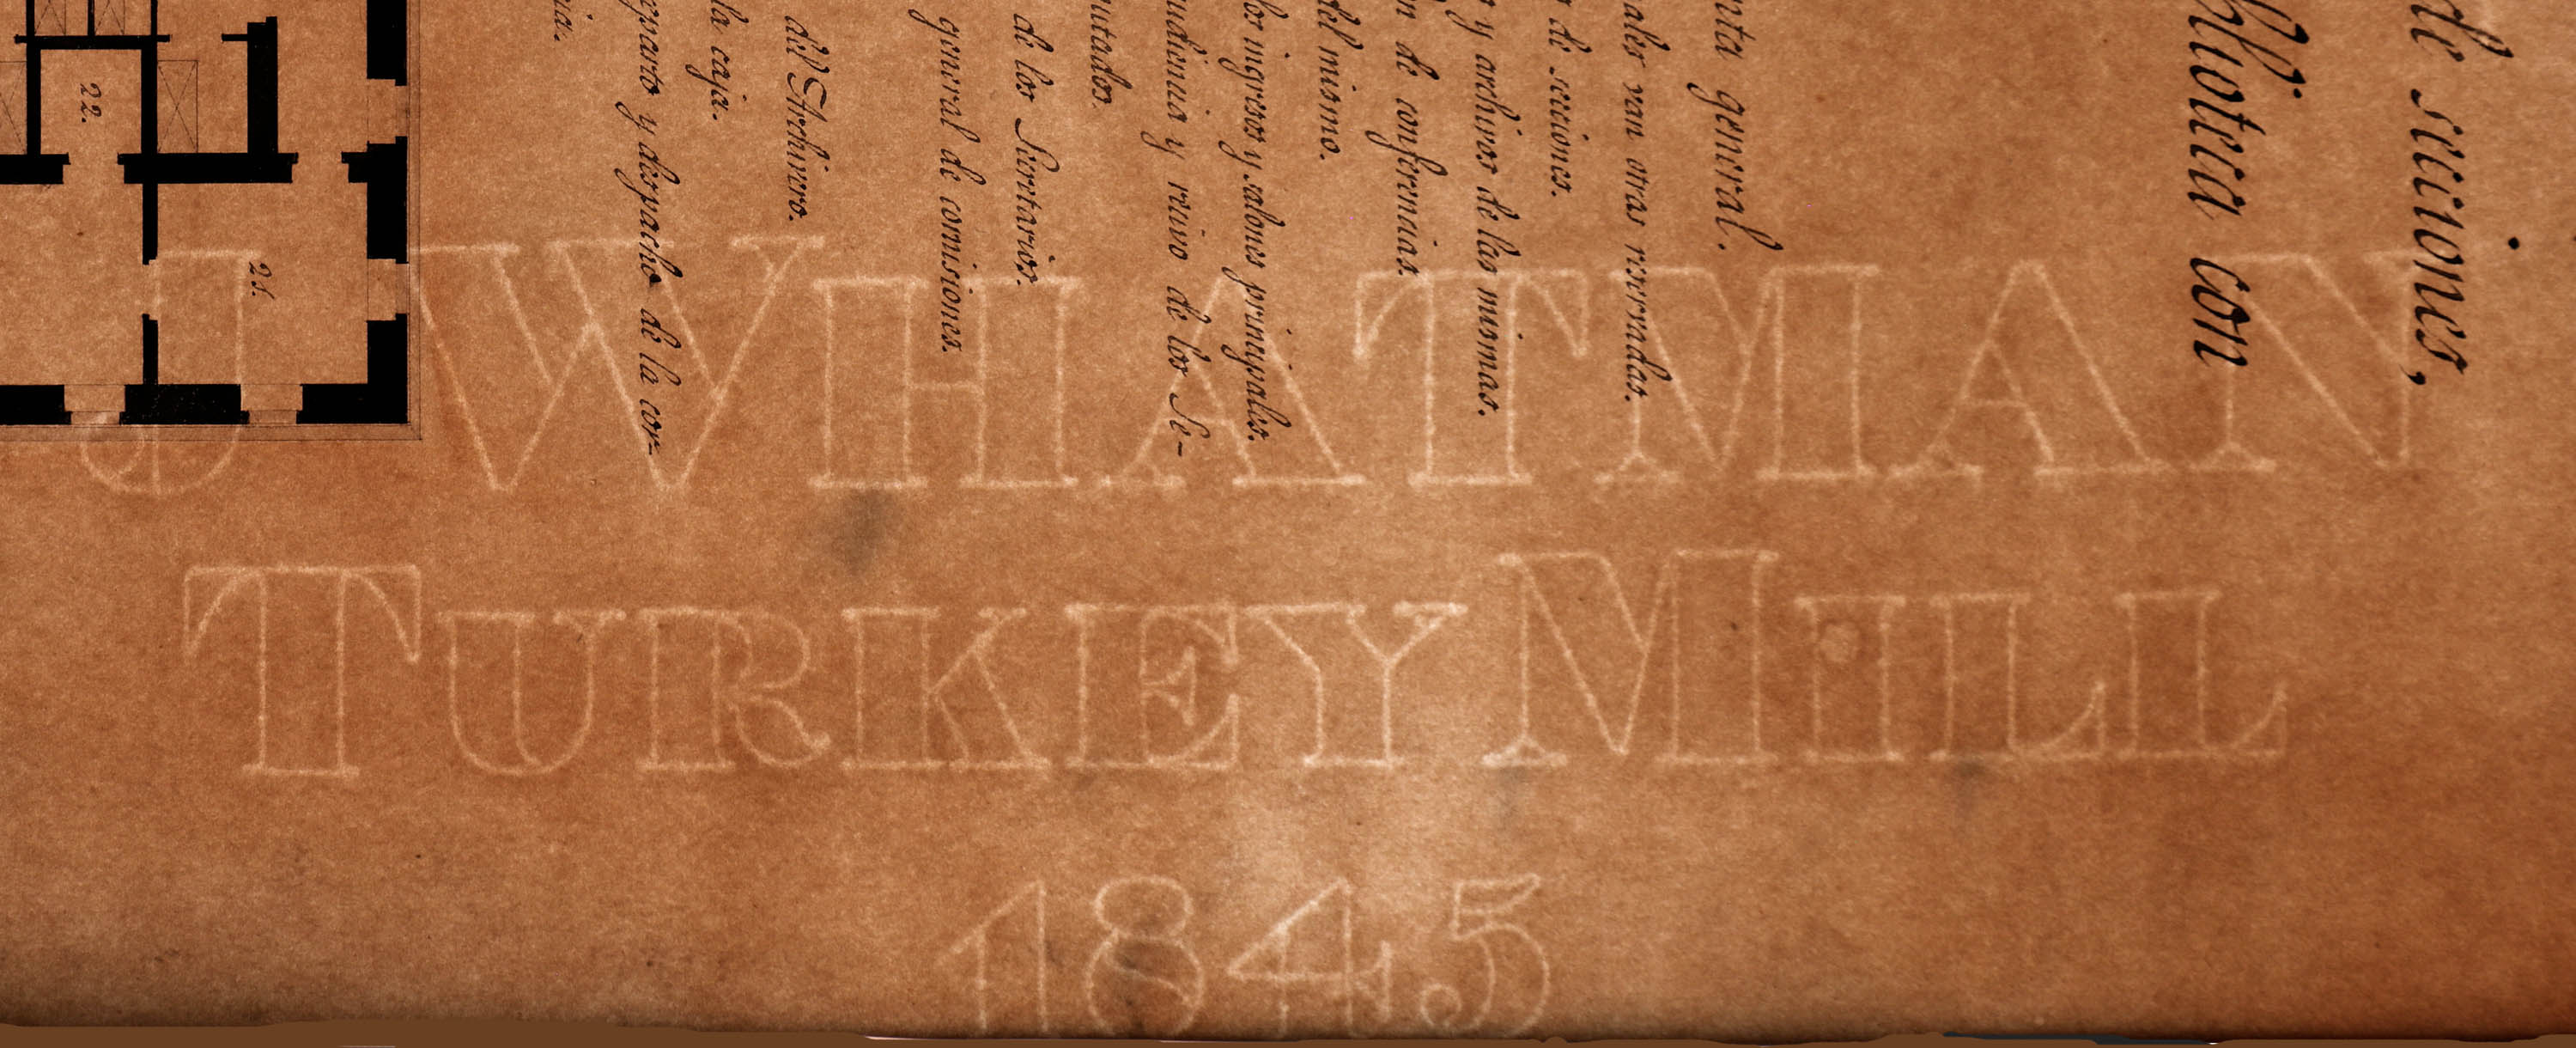 de secciones,
blioteca con
nta general.
ales van otras reservadas.
de secciones.
y archivos de las mismas.
n de conferencias.
del mismo.
los ingresos y salones principales.
udiencia y recivo de los Se-
utados.
de los Secretarios.
general de comisiones.
del Archivero.
la caja.
eparto y despacho de la cor-
ia.
22.
21.
J WHATMAN
TURKEY MILL
1845